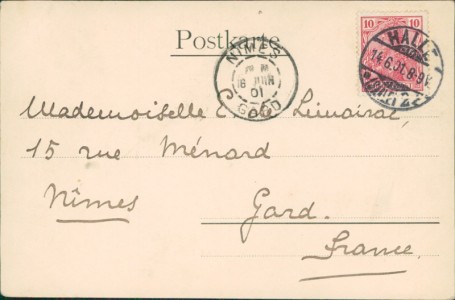 Postkarte
10 10
HALLE
14.6.01.8-9V.
NIMES
16 JUIN
01
GARD
Mademoiselle
15 rue Ménard
Nîmes
Gard.
France.